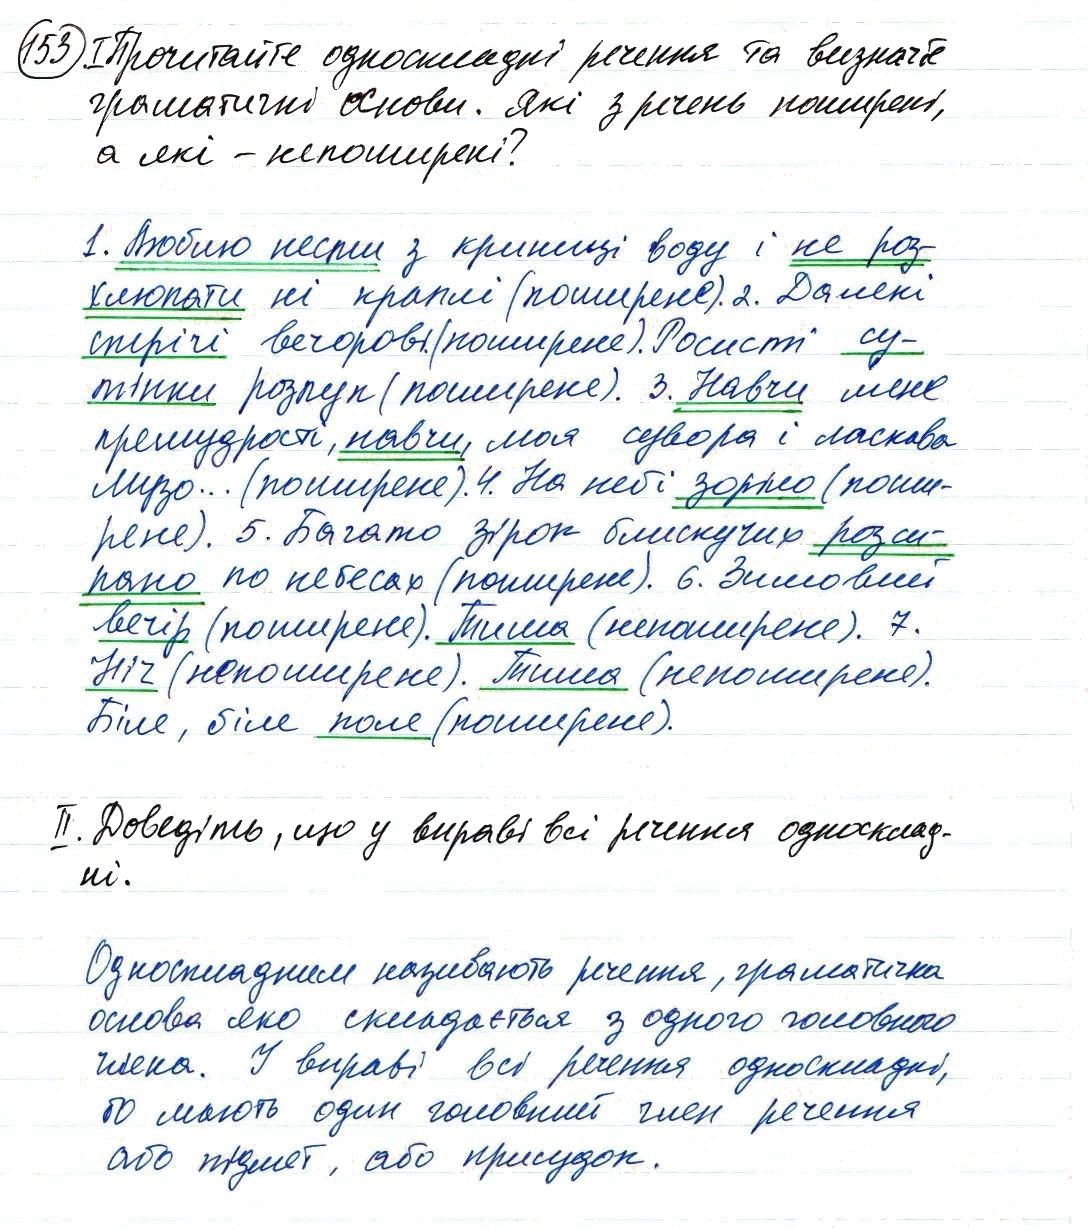 153 I Прочитайте односкладні речення та визначте
граматичні основи. Які з речень поширені,
а які – непоширені?
1. Люблю нести з криниці воду і не роз-
хлюпати ні краплі (поширене). 2. Далекі
стрічі вечорові. (поширене). Росисті су-
тінки розлук (поширене). 3. Навчи мене
премудрості, навчи, моя сувора і ласкава
Музо... (поширене). 4. На небі зоряно (поши-
рене). 5. Багато зірок блискучих розси-
пано по небесах (поширене). 6. Зимовий
вечір (поширене). Тиша (непоширене). 7.
Ніч (непоширене). Тиша (непоширене).
Біле, біле поле (поширене).
II. Доведіть, що у вправі всі речення односклад-
ні.
Односкладним називають речення, граматична
основа яко складається з одного головного
члена. У вправі всі речення односкладні,
бо мають один головний член речення
або підмет, або присудок.